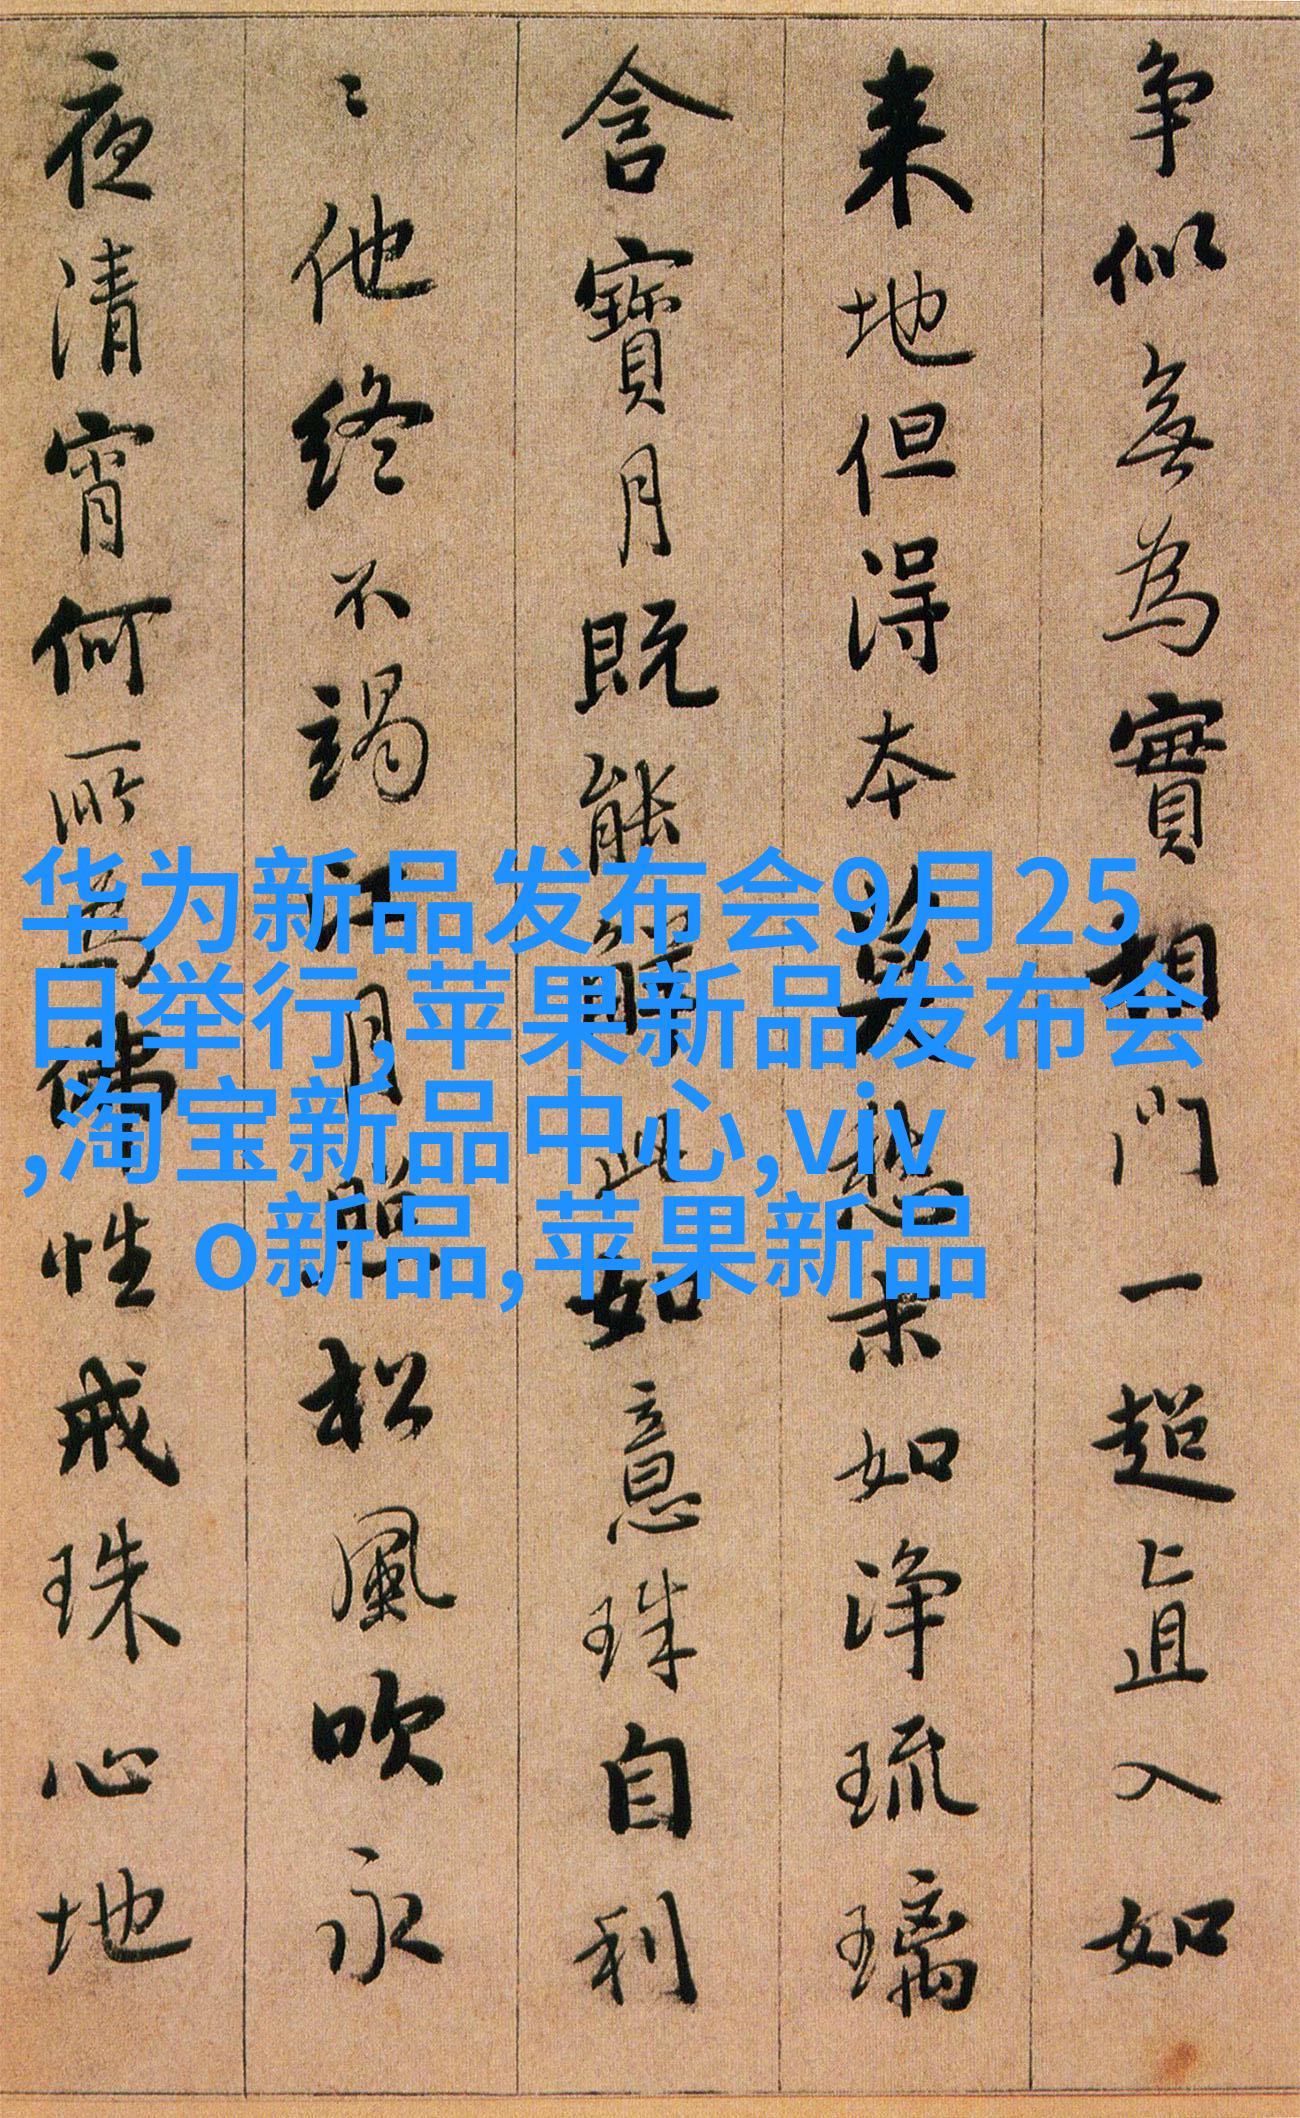 争似無為實相門一超直入如
来地但得本莫愁末如浄琉璃
含寶月既能解此如意珠自利
〻他終不竭江月照松風吹永
夜清宵何所為佛性戒珠心地
华为新品发布会9月25
日举行,苹果新品发布会
,淘宝新品中心,viv
o新品,苹果新品